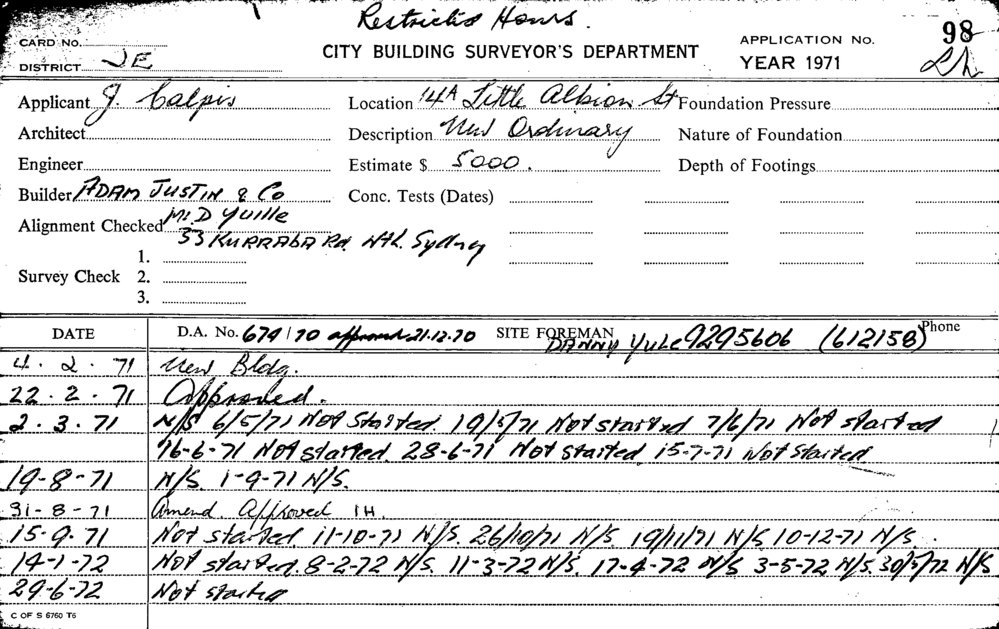 Restricted Hours.
CARD No. CITY BUILDING SURVEYOR'S DEPARTMENT APPLICATION No. 98
DISTRICT JE YEAR 1971
Applicant J. Calpis Location 14A Little Albion St Foundation Pressure
Architect Description New Ordinary Nature of Foundation
Engineer Estimate $ 5000. Depth of Footings
Builder ADAM JUSTIN & Co Conc. Tests (Dates)
Alignment Checked Mr D Yuille
33 KURRABA Rd. Nth. Sydney
1.
Survey Check 2.
3.
DATE D.A. No. 679/70 approved 21.12.70 SITE FOREMAN DANNY YULE 9295606 (612158) Phone
4.2.71 New Bldg.
22.2.71 Approved.
2.3.71 N/S 6/5/71 Not Started. 19/5/71 Not started 7/6/71 Not started
16-6-71 Not started 28-6-71 Not started 15-7-71 Not Started
19-8-71 N/S. 1-9-71 N/S.
31-8-71 Amend Approved IH.
15.9.71 Not started 11-10-71 N/S. 26/10/71 N/S. 19/11/71 N/S 10-12-71 N/S.
14-1-72 Not started. 8-2-72 N/S. 11-3-72 N/S. 17-4-72 N/S 3-5-72 N/S. 30/5/72 N/S
29-6-72 Not started
C OF S 6760 T6